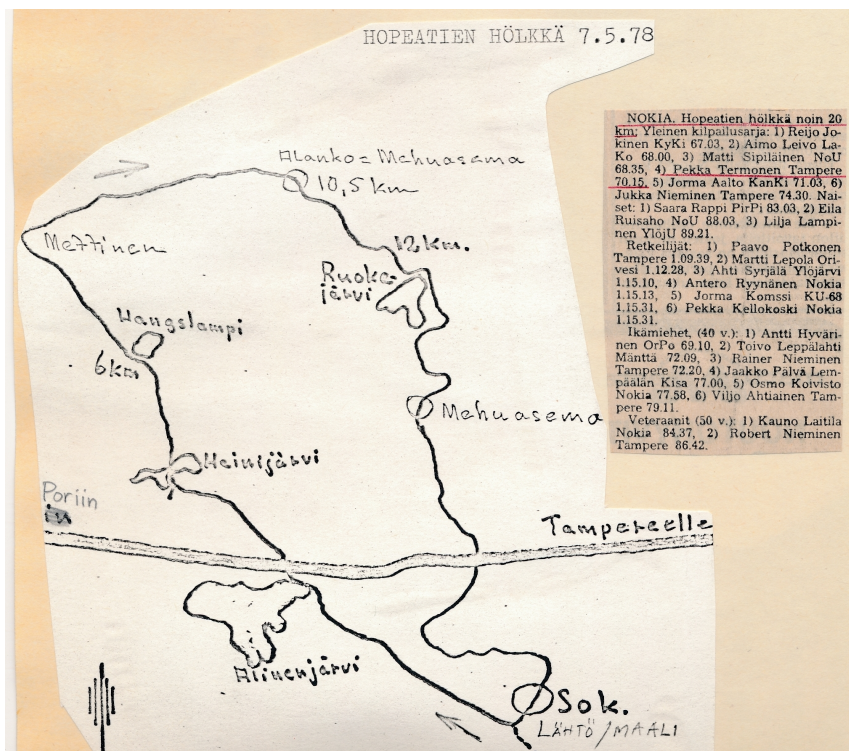 HOPEATIEN HÖLKKÄ 7.5.78
Alanko = Mehuasema
10,5 km
Mettinen
12 km.
Ruoke-
järvi
Hangslampi
6 km
Mehuasema
Heinijärvi
Poriin
in
Tampereelle
Alinenjärvi
Sok.
LÄHTÖ / MAALI
NOKIA. Hopeatien hölkkä noin 20
km: Yleinen kilpailusarja: 1) Reijo Jo-
kinen KyKi 67.03, 2) Aimo Leivo La-
Ko 68.00, 3) Matti Sipiläinen NoU
68.35, 4) Pekka Termonen Tampere
70.15, 5) Jorma Aalto KanKi 71.03, 6)
Jukka Nieminen Tampere 74.30. Nai-
set: 1) Saara Rappi PirPi 83.03, 2) Eila
Ruisaho NoU 88.03, 3) Lilja Lampi-
nen YlöjU 89.21.
Retkeilijät: 1) Paavo Potkonen
Tampere 1.09.39, 2) Martti Lepola Ori-
vesi 1.12.28, 3) Ahti Syrjälä Ylöjärvi
1.15.10, 4) Antero Ryynänen Nokia
1.15.13, 5) Jorma Komssi KU-68
1.15.31, 6) Pekka Kellokoski Nokia
1.15.31.
Ikämiehet, (40 v.): 1) Antti Hyväri-
nen OrPo 69.10, 2) Toivo Leppälahti
Mänttä 72.09, 3) Rainer Nieminen
Tampere 72.20, 4) Jaakko Pälvä Lem-
päälän Kisa 77.00, 5) Osmo Koivisto
Nokia 77.58, 6) Viljo Ahtiainen Tam-
pere 79.11.
Veteraanit (50 v.): 1) Kauno Laitila
Nokia 84.37, 2) Robert Nieminen
Tampere 86.42.